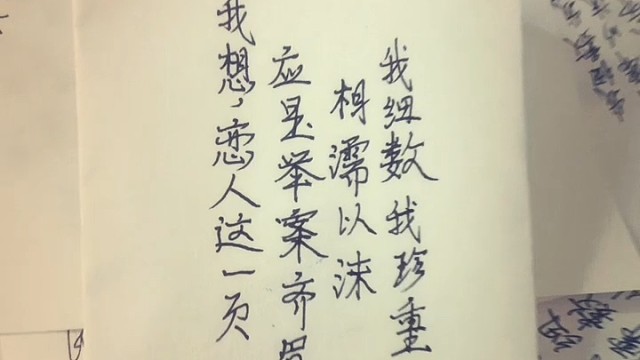 我想，恋人这一页
应是举案齐眉
相濡以沫
我细数我珍重